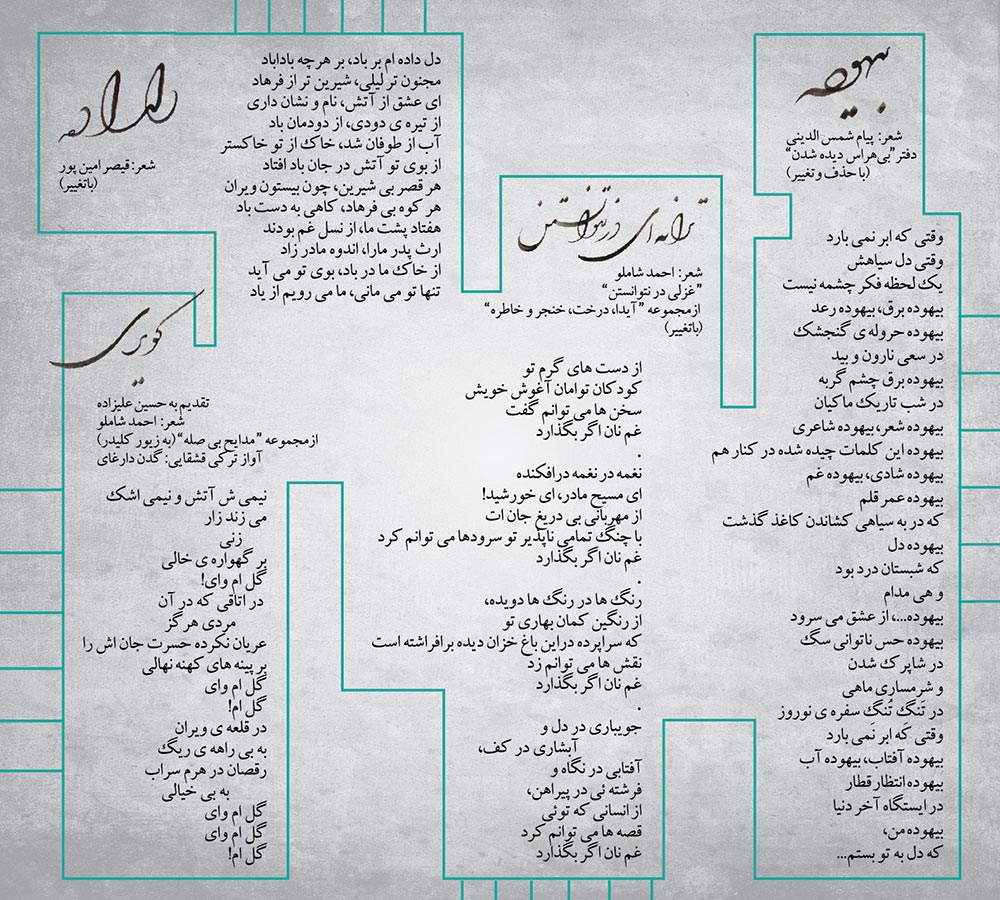 بیهوده
شعر: پیام شمس الدینی
دفتر "بی‌هراس دیده شدن"
(با حذف و تغییر)
وقتی که ابر نمی بارد
وقتی دل سیاهش
یک لحظه فکر چشمه نیست
بیهوده برق، بیهوده رعد
بیهوده حروله ی گنجشک
در سعی نارون و بید
بیهوده برق چشم گربه
در شب تاریک ماکیان
بیهوده شعر، بیهوده شاعری
بیهوده این کلمات چیده شده در کنار هم
بیهوده شادی، بیهوده غم
بیهوده عمر قلم
که در به سیاهی کشاندن کاغذ گذشت
بیهوده دل
که شبستان درد بود
و هی مدام
بیهوده...، از عشق می سرود
بیهوده حس ناتوانی سگ
در شاپرک شدن
و شرمساری ماهی
در تَنگ تُنگ سفره ی نوروز
وقتی که ابر نمی بارد
بیهوده آفتاب، بیهوده آب
بیهوده انتظار قطار
در ایستگاه آخر دنیا
بیهوده من،
که دل به تو بستم...
ترانه ای در نتوانستن
شعر: احمد شاملو
"غزلی در نتوانستن"
ازمجموعه "آیدا، درخت، خنجر و خاطره"
(باتغییر)
از دست های گرم تو
کودکان توامان آغوش خویش
سخن ها می توانم گفت
غم نان اگر بگذارد
.
نغمه در نغمه درافکنده
ای مسیح مادر، ای خورشید!
از مهربانی بی دریغ جان ات
با چنگ تمامی ناپذیر تو سرودها می توانم کرد
غم نان اگر بگذارد
.
رنگ ها در رنگ ها دویده،
از رنگین کمان بهاری تو
که سراپرده دراین باغ خزان دیده برافراشته است
نقش ها می توانم زد
غم نان اگر بگذارد
.
جویباری در دل و
آبشاری در کف،
آفتابی در نگاه و
فرشته ئی در پیراهن،
از انسانی که توئی
قصه ها می توانم کرد
غم نان اگر بگذارد
دلداده
شعر: قیصر امین پور
(باتغییر)
دل داده ام بر باد، بر هرچه باداباد
مجنون تر لیلی، شیرین تر از فرهاد
ای عشق از آتش، نام و نشان داری
از تیره ی دودی، از دودمان باد
آب از طوفان شد، خاک از تو خاکستر
از بوی تو آتش در جان باد افتاد
هر قصر بی شیرین، چون بیستون ویران
هر کوه بی فرهاد، کاهی به دست باد
هفتاد پشت ما، از نسل غم بودند
ارث پدر مارا، اندوه مادر زاد
از خاک ما در باد، بوی تو می آید
تنها تو می مانی، ما می رویم از یاد
کویری
تقدیم به حسین علیزاده
شعر: احمد شاملو
ازمجموعه "مدایح بی صله" (به زیور کلیدر)
آواز ترکی قشقایی: گدن دارغای
نیمی ش آتش و نیمی اشک
می زند زار
زنی
بر گهواره ی خالی
گل ام وای!
در اتاقی که در آن
مردی هرگز
عریان نکرده حسرت جان اش را
بر پینه های کهنه نهالی
گل ام وای
گل ام!
در قلعه ی ویران
به بی راهه ی ریگ
رقصان در هرم سراب
به بی خیالی
گل ام وای
گل ام وای
گل ام!